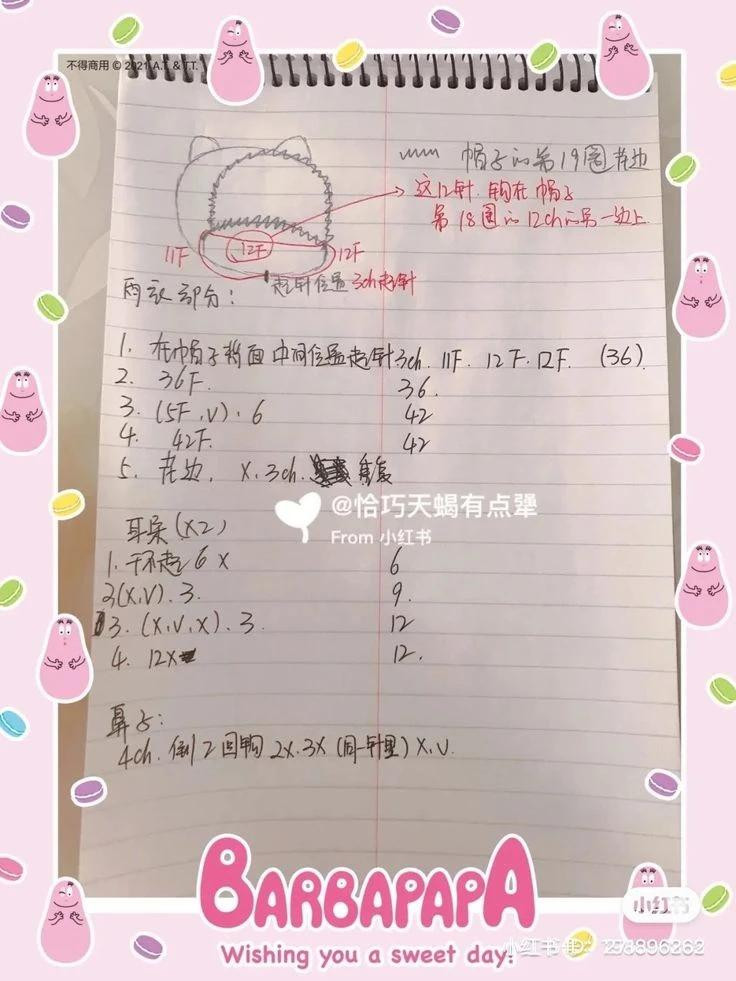 不得商用 © 2021 A.T. & T.T.
帽子的第19圈花边
这12针.钩在帽子
第18圈的12ch的另一边上
11F
12F
12F
起针位置3ch起针
雨衣部分:
1. 在帽子背面中间位置起针3ch. 11F. 12F. 12F. (36)
2. 36F. 36.
3. (5F,V).6 42
4. 42F. 42
5. 花边. X.3ch. 重复
@恰巧天蝎有点犟
From 小红书
耳朵(X2)
1. 6X 6
2(X,V).3. 9.
3. (X,V,X).3. 12
4. 12X 12.
鼻子:
4ch. 倒2回钩 2X.3X (同一针里) X.V.
BARBAPAPA
Wishing you a sweet day!
小红书
小红书号: